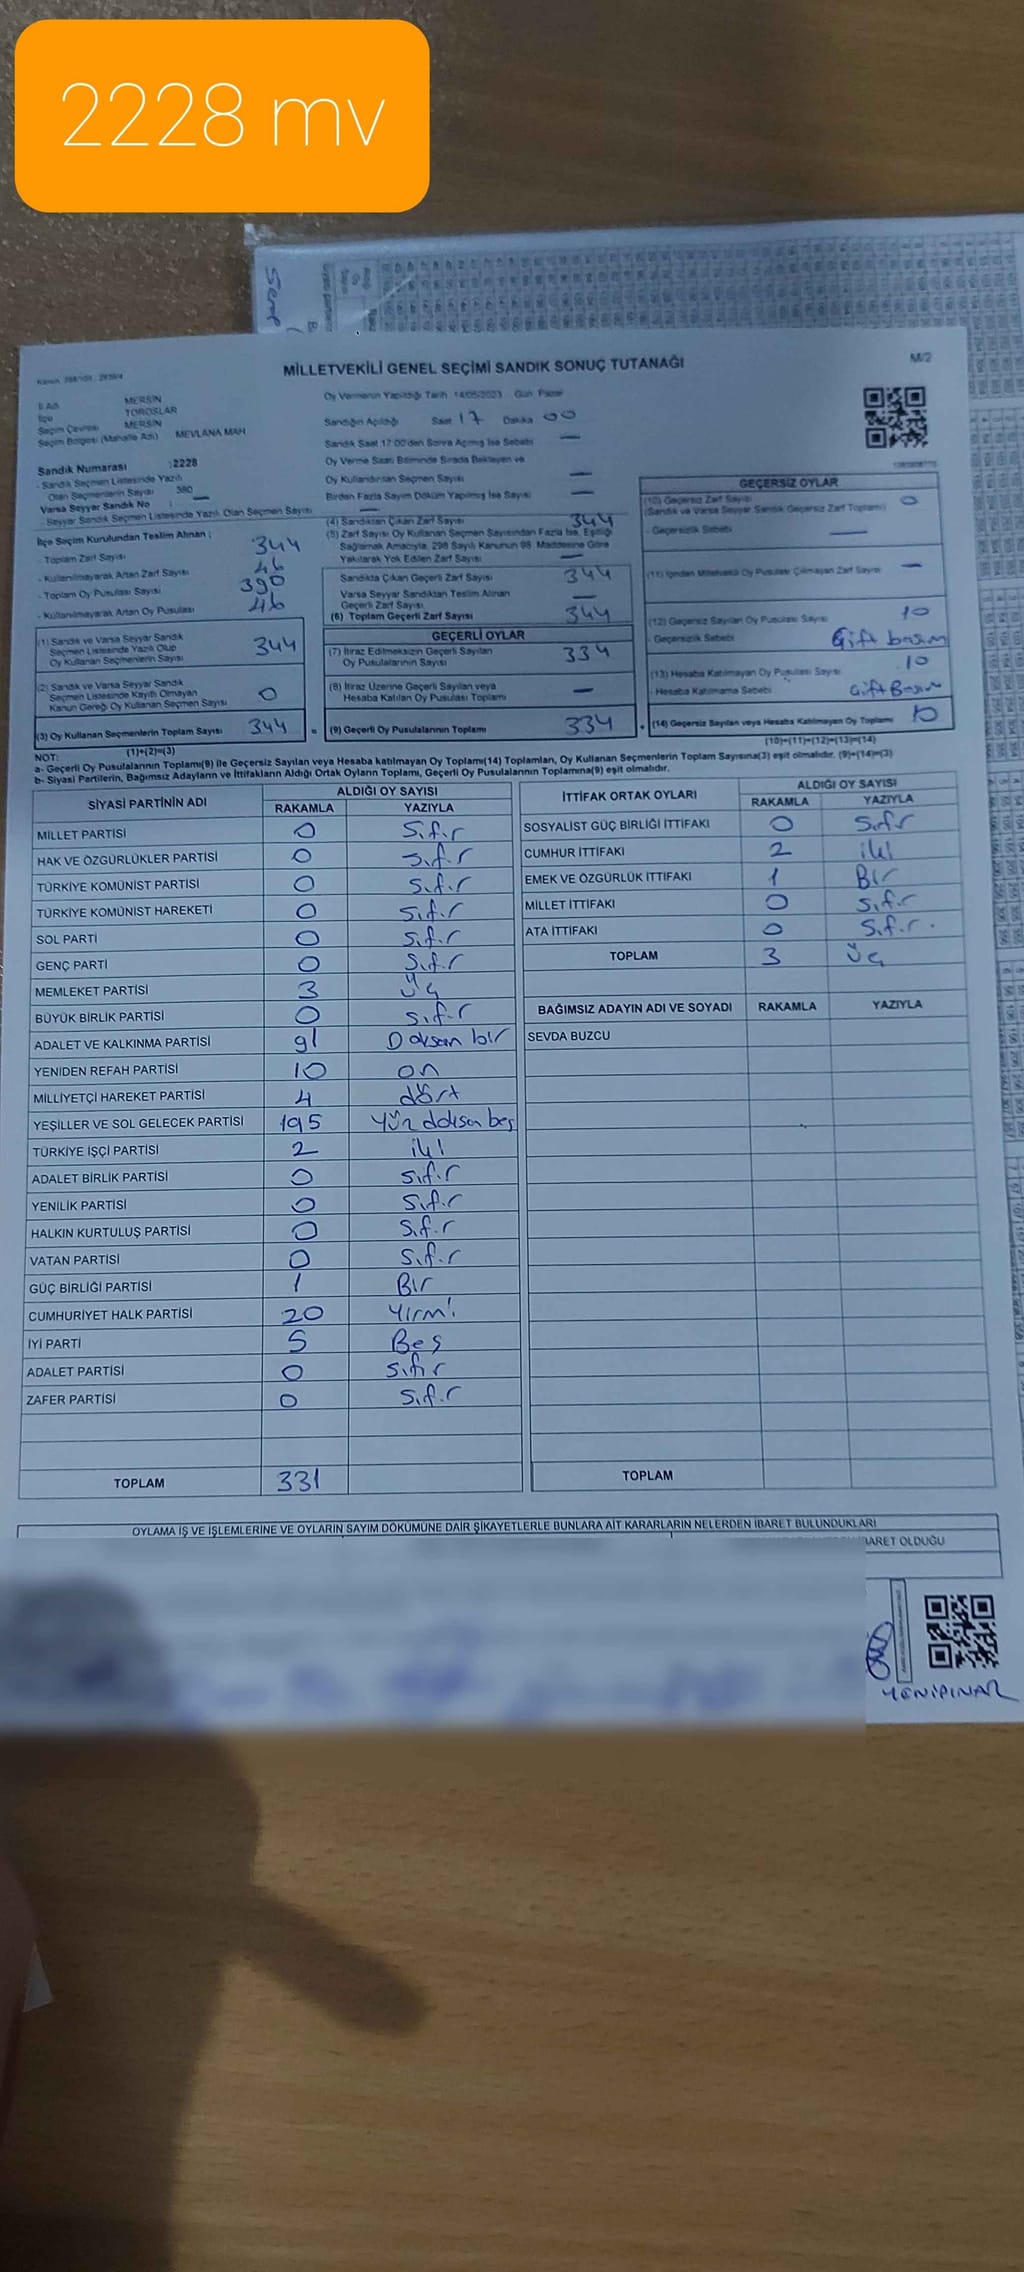 2228 mv
MİLLETVEKİLİ GENEL SEÇİMİ SANDIK SONUÇ TUTANAĞI
M/2
İl Adı MERSİN
İlçe TOROSLAR
Seçim Çevresi MERSİN
Seçim Bölgesi (Mahalle Adı) MEVLANA MAH
Sandık Numarası :2228
- Sandık Seçmen Listesinde Yazılı
Olan Seçmenlerin Sayısı 380
Varsa Seyyar Sandık No :
- Seyyar Sandık Seçmen Listesinde Yazılı Olan Seçmen Sayısı —
İlçe Seçim Kurulundan Teslim Alınan ;
- Toplam Zarf Sayısı 344
- Kullanılmayarak Artan Zarf Sayısı 46
- Toplam Oy Pusulası Sayısı 390
- Kullanılmayarak Artan Oy Pusulası 46
(1) Sandık ve Varsa Seyyar Sandık
Seçmen Listesinde Yazılı Olup
Oy Kullanan Seçmenlerin Sayısı 344
(2) Sandık ve Varsa Seyyar Sandık
Seçmen Listesinde Kayıtlı Olmayan
Kanun Gereği Oy Kullanan Seçmen Sayısı 0
(3) Oy Kullanan Seçmenlerin Toplam Sayısı 344
(1)+(2)=(3)
Oy Vermenin Yapıldığı Tarih 14/05/2023 Gün Pazar
Sandığın Açıldığı Saat 17 Dakika 00
Sandık Saat 17:00'den Sonra Açılmış İse Sebebi —
Oy Verme Saati Bitiminde Sırada Bekleyen ve
Oy Kullandırılan Seçmen Sayısı —
Birden Fazla Sayım Döküm Yapılmış İse Sayısı —
(4) Sandıktan Çıkan Zarf Sayısı 344
(5) Zarf Sayısı Oy Kullanan Seçmen Sayısından Fazla İse, Eşitliği
Sağlamak Amacıyla, 298 Sayılı Kanunun 98. Maddesine Göre
Yakılarak Yok Edilen Zarf Sayısı —
Sandıkta Çıkan Geçerli Zarf Sayısı 344
Varsa Seyyar Sandıktan Teslim Alınan
Geçerli Zarf Sayısı —
(6) Toplam Geçerli Zarf Sayısı 344
GEÇERLİ OYLAR
(7) İtiraz Edilmeksizin Geçerli Sayılan
Oy Pusulalarının Sayısı 334
(8) İtiraz Üzerine Geçerli Sayılan veya
Hesaba Katılan Oy Pusulası Toplamı —
= (9) Geçerli Oy Pusulalarının Toplamı 334
GEÇERSİZ OYLAR
(10) Geçersiz Zarf Sayısı 0
(Sandık ve Varsa Seyyar Sandık Geçersiz Zarf Toplamı)
- Geçersizlik Sebebi —
(11) İçinden Milletvekili Oy Pusulası Çıkmayan Zarf Sayısı —
(12) Geçersiz Sayılan Oy Pusulası Sayısı 10
- Geçersizlik Sebebi Çift basım
(13) Hesaba Katılmayan Oy Pusulası Sayısı 10
- Hesaba Katılmama Sebebi Çift Basım
+ (14) Geçersiz Sayılan veya Hesaba Katılmayan Oy Toplamı 10
(10)+(11)+(12)+(13)=(14)
NOT:
a- Geçerli Oy Pusulalarının Toplamı(9) ile Geçersiz Sayılan veya Hesaba katılmayan Oy Toplamı(14) Toplamları, Oy Kullanan Seçmenlerin Toplam Sayısına(3) eşit olmalıdır. (9)+(14)=(3)
b- Siyasi Partilerin, Bağımsız Adayların ve İttifakların Aldığı Ortak Oyların Toplamı, Geçerli Oy Pusulalarının Toplamına(9) eşit olmalıdır.
SİYASİ PARTİNİN ADI ALDIĞI OY SAYISI
RAKAMLA YAZIYLA
MİLLET PARTİSİ 0 Sıfır
HAK VE ÖZGÜRLÜKLER PARTİSİ 0 Sıfır
TÜRKİYE KOMÜNİST PARTİSİ 0 Sıfır
TÜRKİYE KOMÜNİST HAREKETİ 0 Sıfır
SOL PARTİ 0 Sıfır
GENÇ PARTİ 0 Sıfır
MEMLEKET PARTİSİ 3 Üç
BÜYÜK BİRLİK PARTİSİ 0 Sıfır
ADALET VE KALKINMA PARTİSİ 91 Doksan bir
YENİDEN REFAH PARTİSİ 10 on
MİLLİYETÇİ HAREKET PARTİSİ 4 dört
YEŞİLLER VE SOL GELECEK PARTİSİ 195 Yüz doksan beş
TÜRKİYE İŞÇİ PARTİSİ 2 iki
ADALET BİRLİK PARTİSİ 0 Sıfır
YENİLİK PARTİSİ 0 Sıfır
HALKIN KURTULUŞ PARTİSİ 0 Sıfır
VATAN PARTİSİ 0 Sıfır
GÜÇ BİRLİĞİ PARTİSİ 1 Bir
CUMHURİYET HALK PARTİSİ 20 Yirmi
İYİ PARTİ 5 Beş
ADALET PARTİSİ 0 Sıfır
ZAFER PARTİSİ 0 Sıfır
TOPLAM 331
İTTİFAK ORTAK OYLARI ALDIĞI OY SAYISI
RAKAMLA YAZIYLA
SOSYALİST GÜÇ BİRLİĞİ İTTİFAKI 0 Sıfır
CUMHUR İTTİFAKI 2 iki
EMEK VE ÖZGÜRLÜK İTTİFAKI 1 Bir
MİLLET İTTİFAKI 0 Sıfır
ATA İTTİFAKI 0 Sıfır.
TOPLAM 3 Üç
BAĞIMSIZ ADAYIN ADI VE SOYADI RAKAMLA YAZIYLA
SEVDA BUZCU
TOPLAM
OYLAMA İŞ VE İŞLEMLERİNE VE OYLARIN SAYIM DÖKÜMÜNE DAİR ŞİKAYETLERLE BUNLARA AİT KARARLARIN NELERDEN İBARET BULUNDUKLARI
BARET OLDUĞU
YENİPINAR